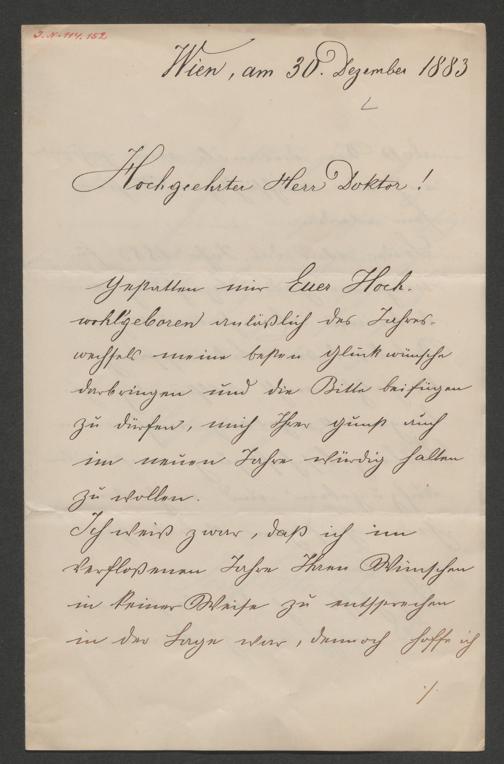 J.N. 114.152
Wien, am 30. Dezember 1883
Hochgeehrter Herr Doktor!
Gestatten mir Euer Hoch-
wohlgeboren anläßlich des Jahres-
wechsels meine besten Glückwünsche
darbringen und die Bitte beifügen
zu dürfen, mich Ihrer Gunst auch
im neuen Jahre würdig halten
zu wollen.
Ich weiß zwar, daß ich im
verfloßenen Jahre Ihren Wünschen
in keiner Weise zu entsprechen
in der Lage war, dennoch hoffe ich
./.